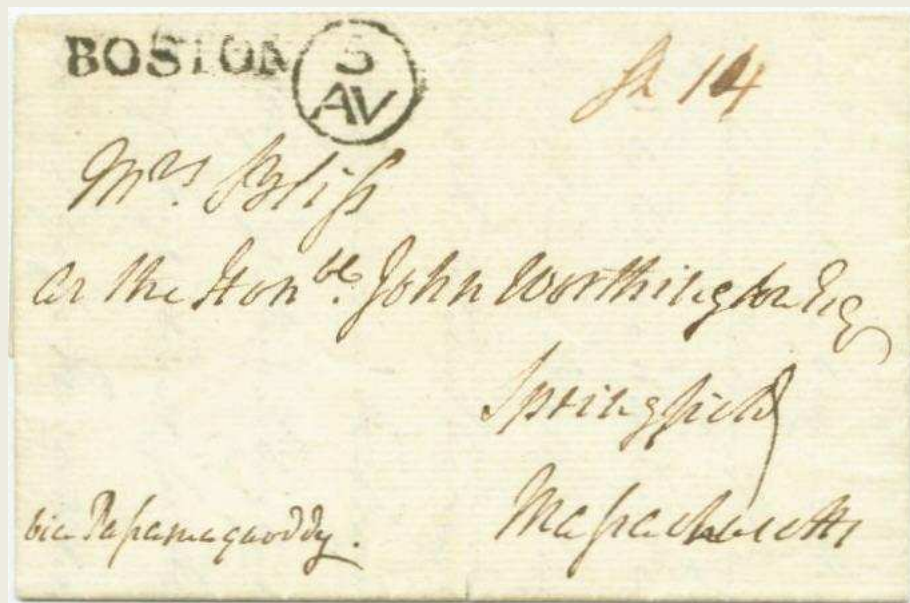 BOSTON 5 AV
Sh 14
Mrs. Bliſs
at the Honble. John Worthington Esq
Springfield
Maſsachusetts
via Paſsamaquoddy.